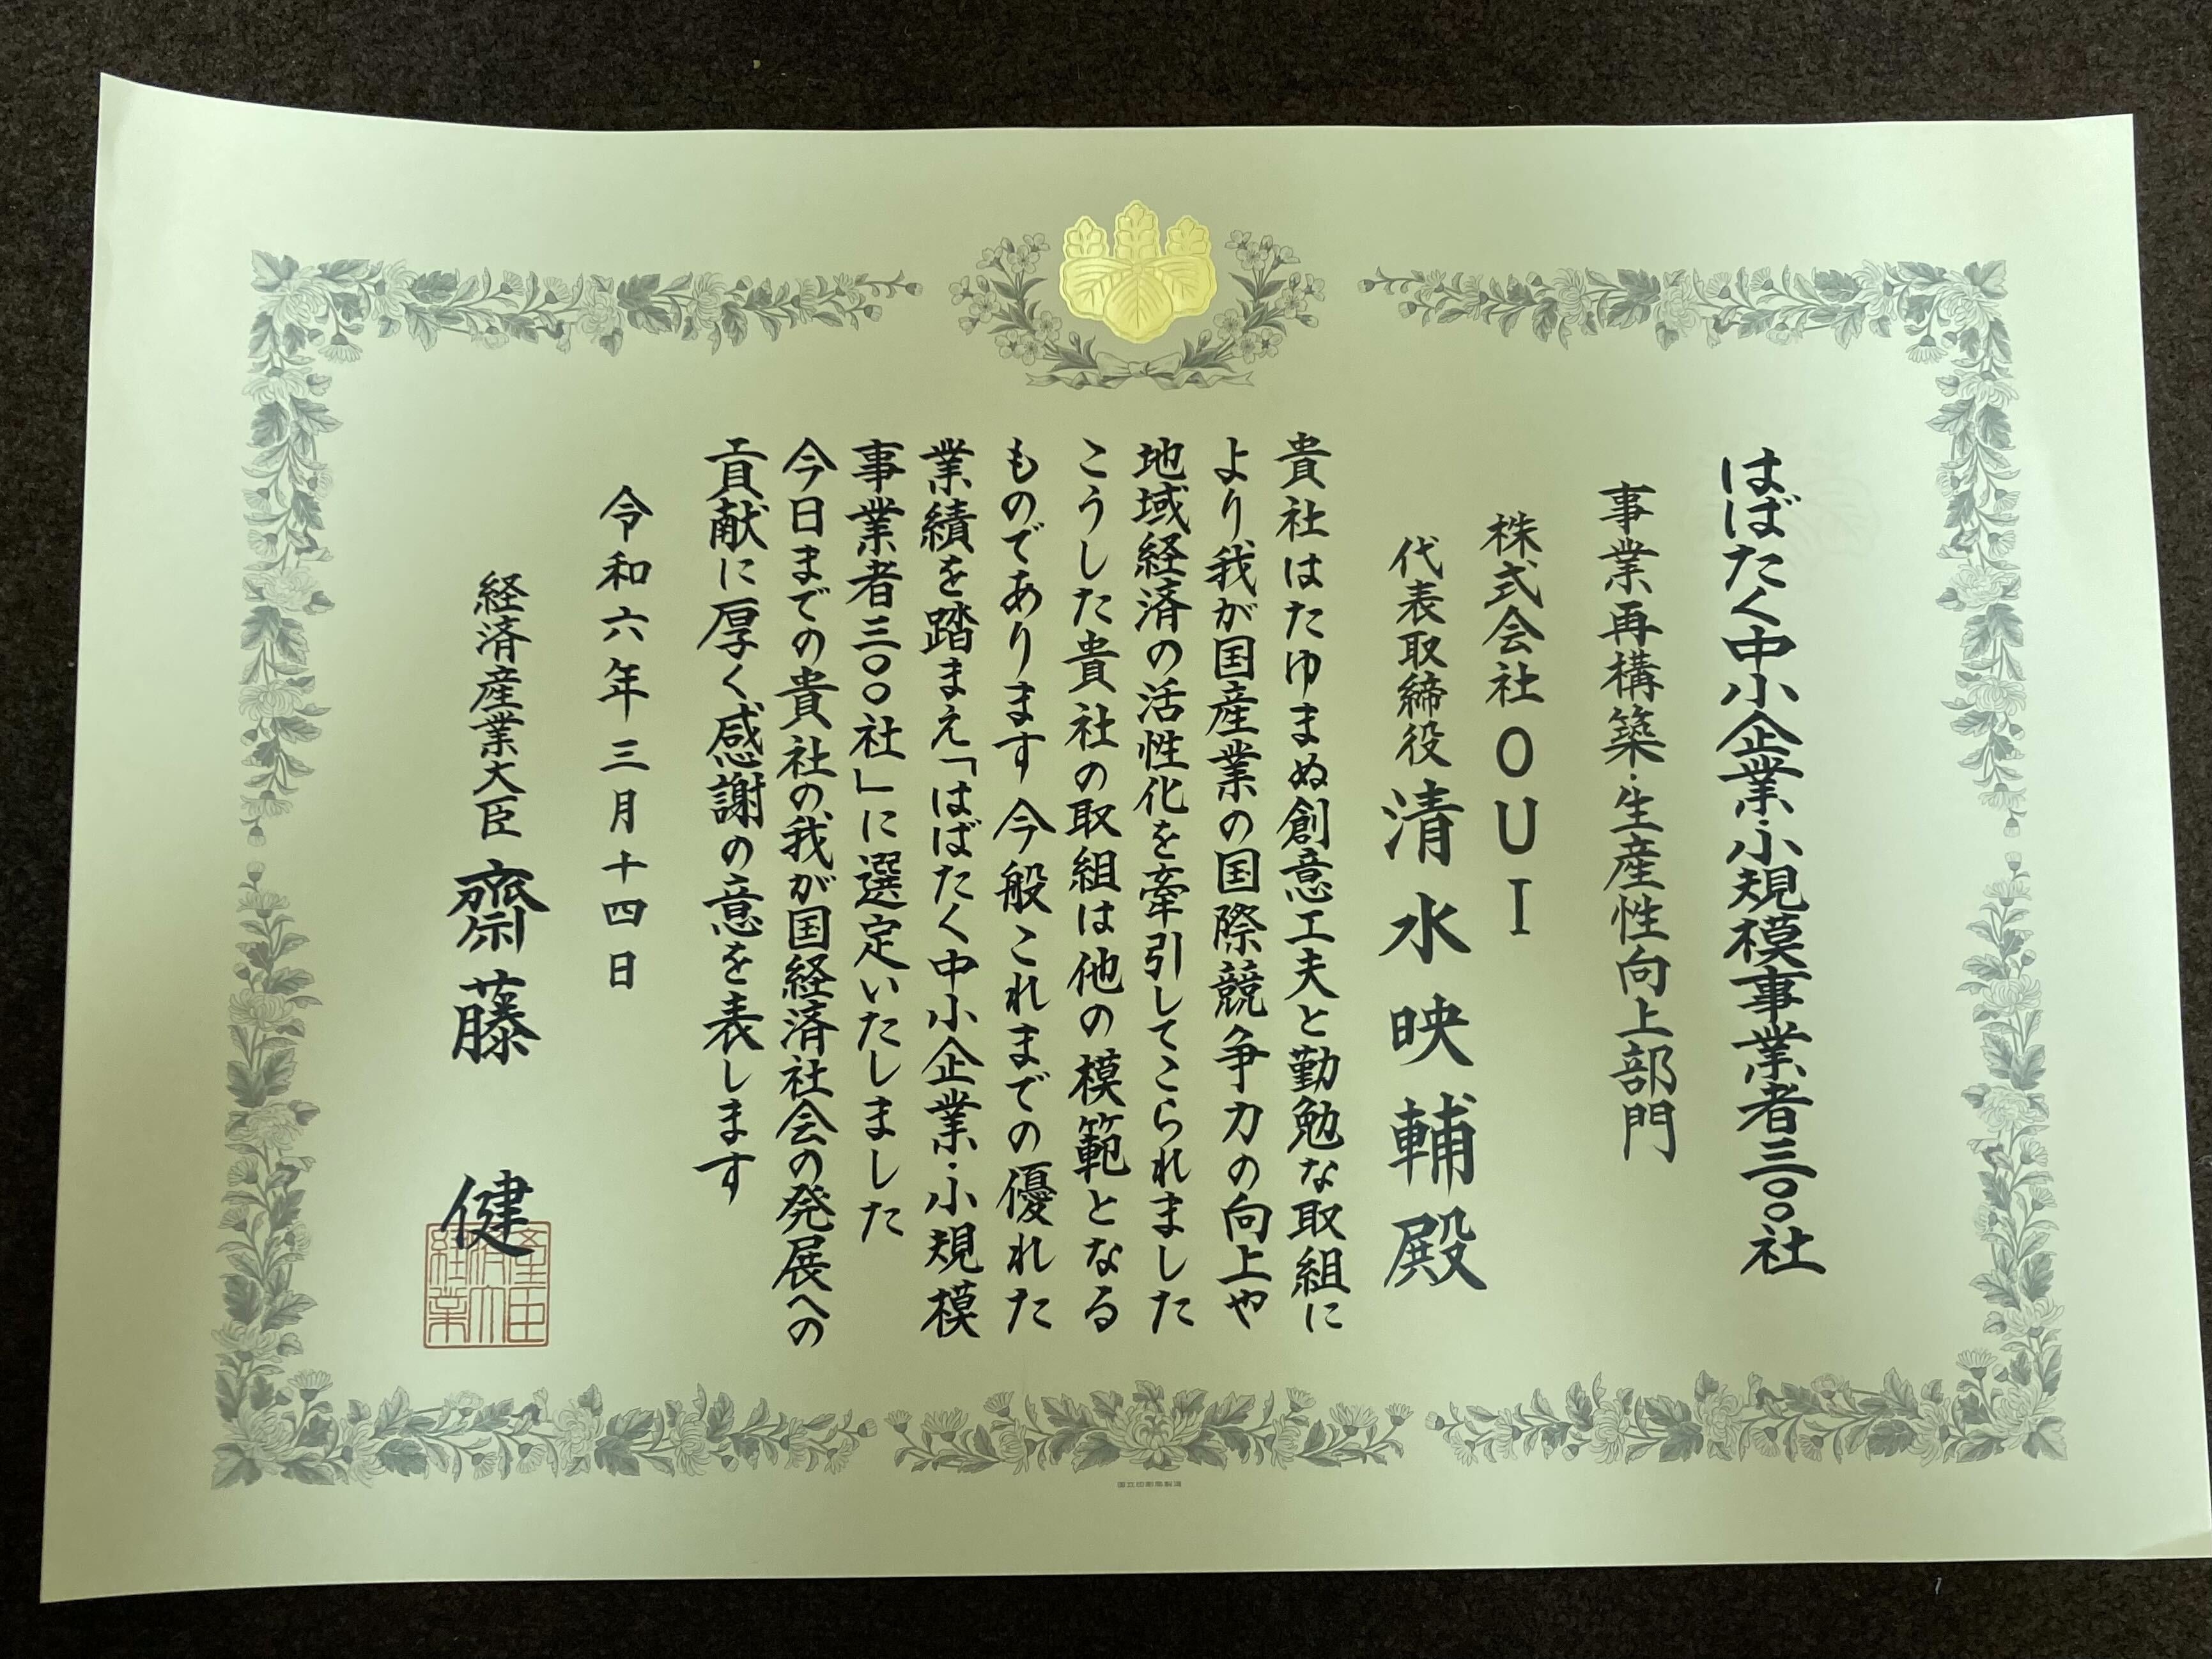 はばたく中小企業・小規模事業者三〇〇社
事業再構築・生産性向上部門
株式会社OUI
代表取締役 清水映輔殿
貴社はたゆまぬ創意工夫と勤勉な取組に
より我が国産業の国際競争力の向上や
地域経済の活性化を牽引してこられました
こうした貴社の取組は他の模範となる
ものであります今般これまでの優れた
業績を踏まえ「はばたく中小企業・小規模
事業者三〇〇社」に選定いたしました
今日までの貴社の我が国経済社会の発展への
貢献に厚く感謝の意を表します
令和六年三月十四日
経済産業大臣 齋藤 健
経済産業大臣
国立印刷局製造